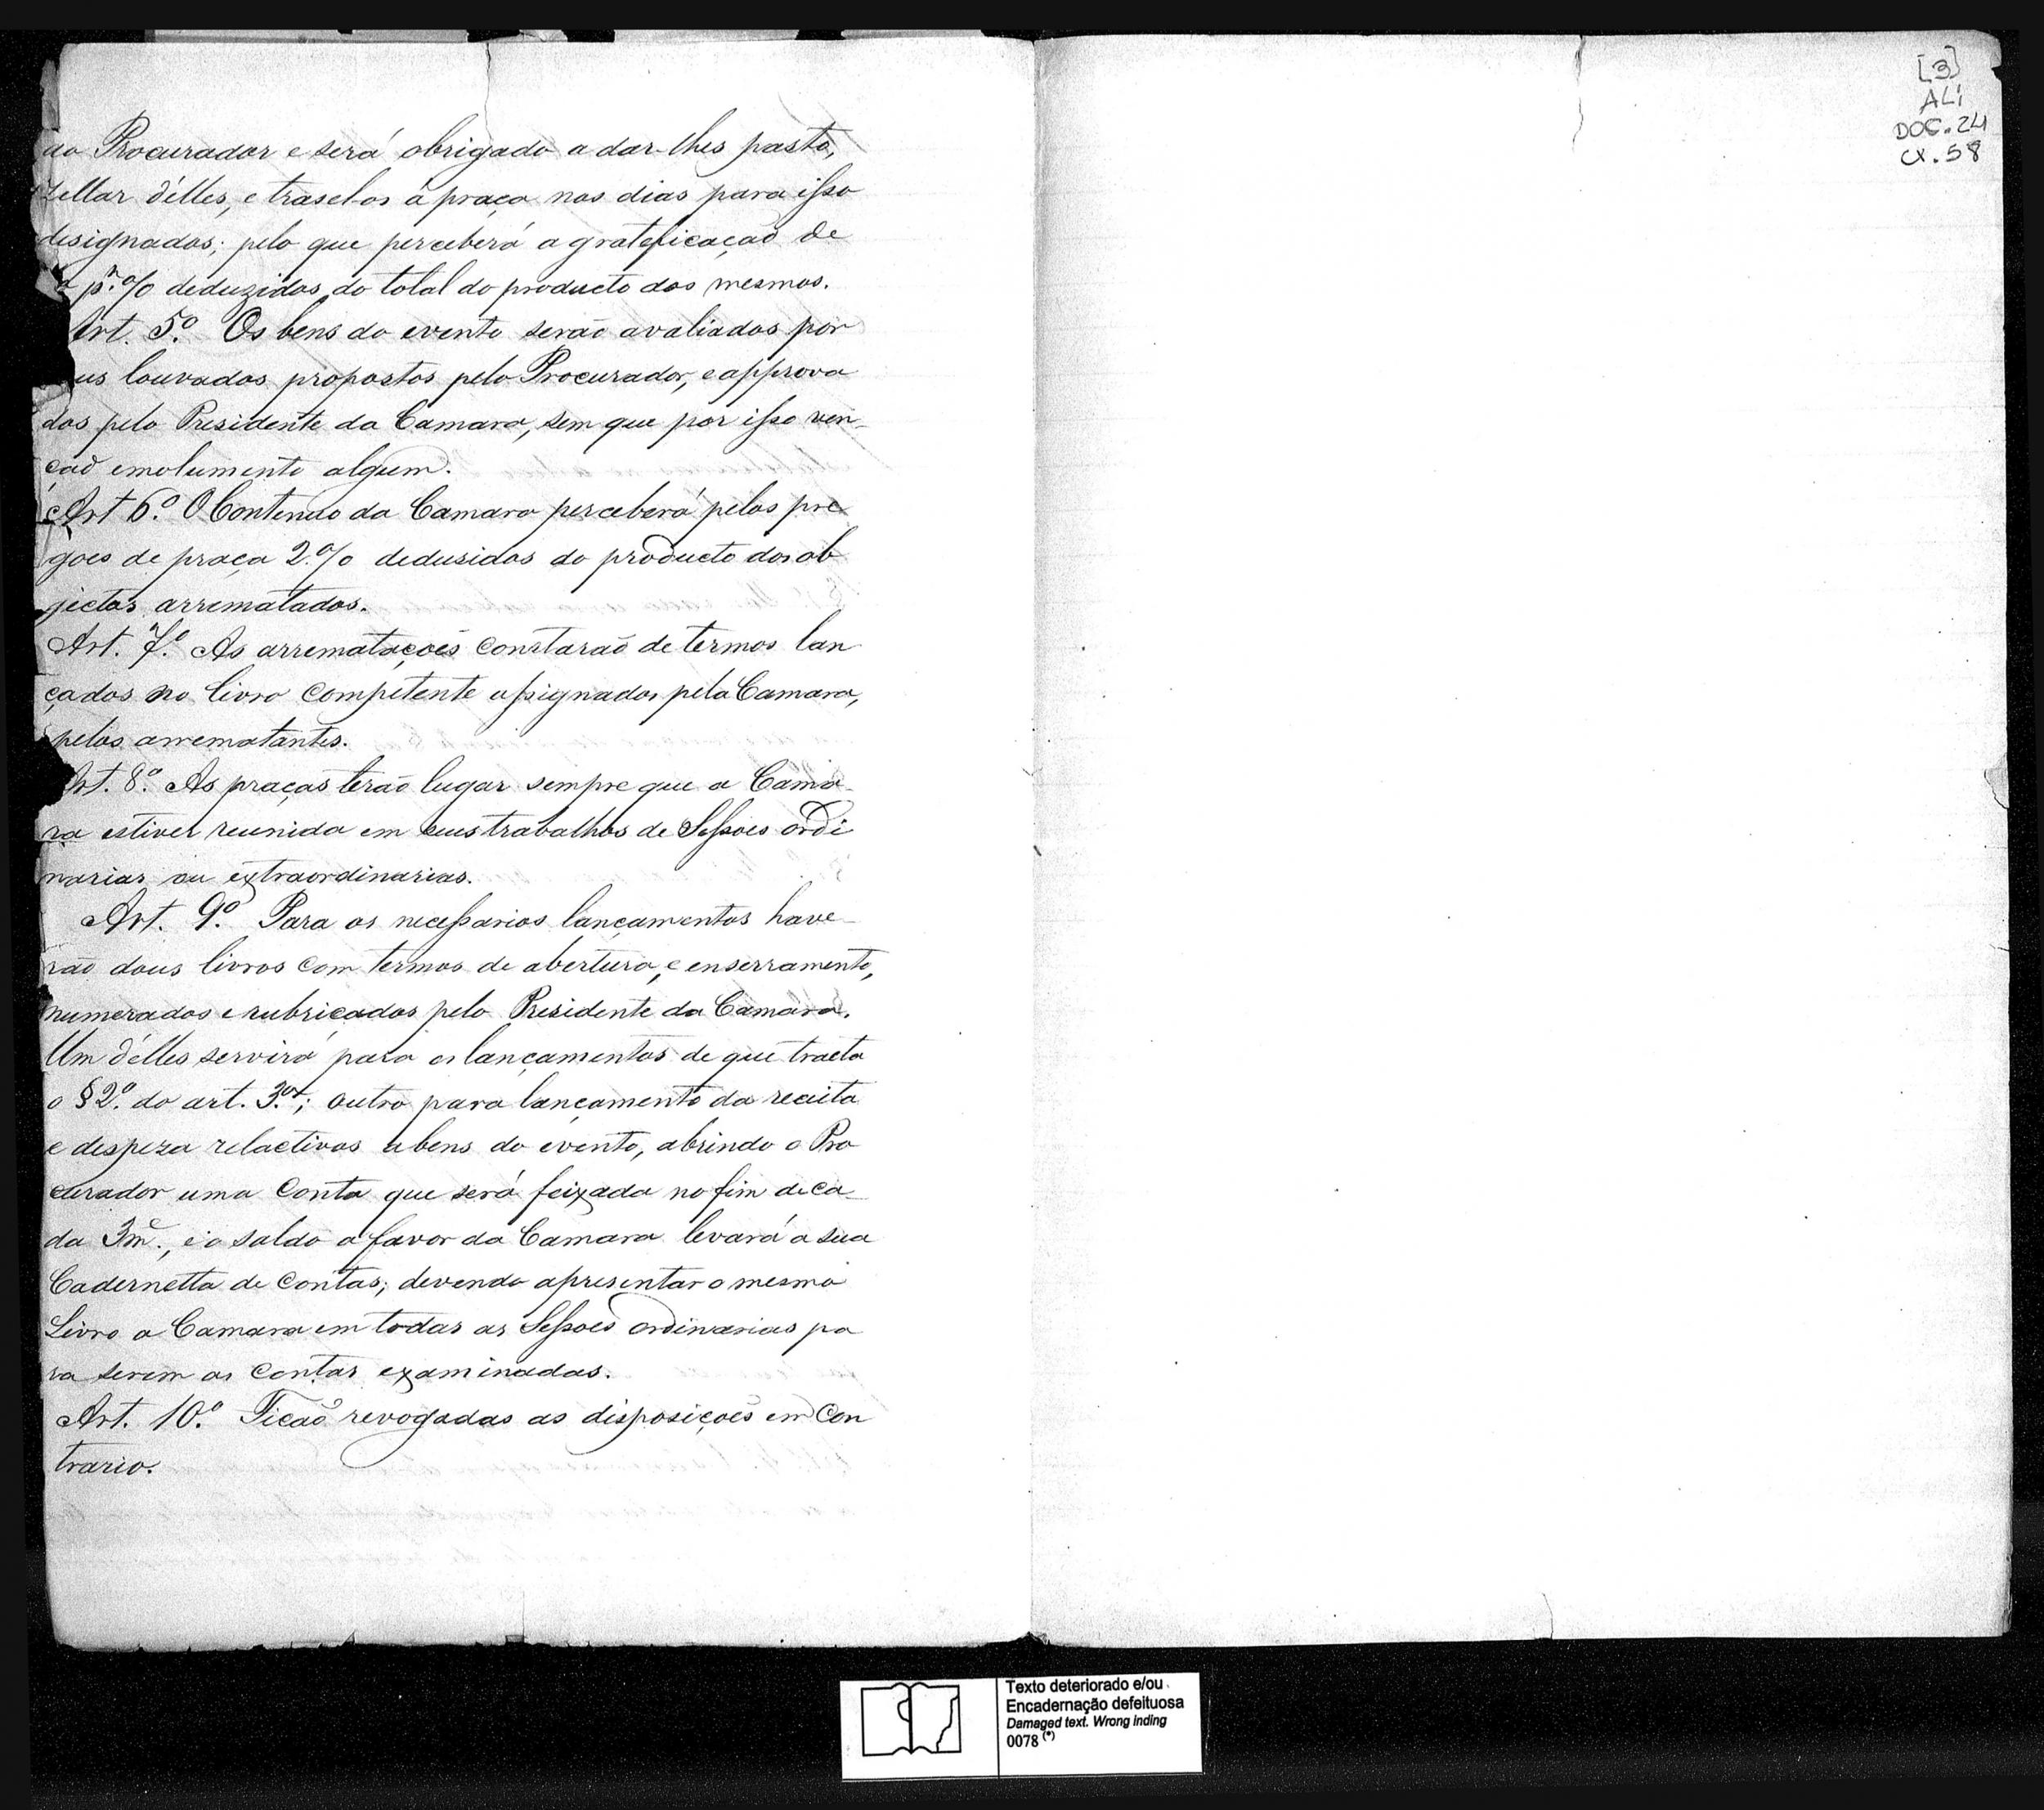 ao Procurador e será obrigado a dar-lhes pasto,
zellar d'elles, e trasel-os á praça nos dias para isso
designados; pelo que perceberá a gratificação de
pr. % deduzidos do total do producto dos mesmos.
Art. 5º. Os bens do evento serão avaliados por
us louvados propostos pelo Procurador, e approva
dos pelo Presidente da Camara, sem que por isso ven-
ção emolumento algum.
Art 6º. O Contenuo da Camara perceberá pelos pre
goes de praça 2.% dedusidos do producto dos ob
jectos arrematados.
Art. 7º. As arrematações constarão de termos lan
çados no livro competente assignados pela Camara,
pelos arrematantes.
Art. 8º. As praças terão lugar sempre que a Cama-
ra estiver reunida em seus trabalhos de Sessoes ordi
narias ou extraordinarias.
Art. 9º. Para os necessarios lançamentos have-
rão dous livros com termos de abertura, e enserramento,
numerados e rubricados pelo Presidente da Camara.
Um d'elles servirá para os lançamentos de que tracta
o § 2º. do art. 3º; outro para lançamento da receita
e despeza relactivos a bens do evento, abrindo o Pro
curador uma conta que será feixada no fim de ca-
da 3me., e o saldo a favor da Camara levará a sua
Cadernetta de contas; devendo apresentar o mesmo
Livro a Camara em todas as Sessoes ordinarias pa
ra serem as contas examinadas.
Art. 10º. Ficão revogadas as disposições em con
trario.
[3]
ALI
DOC. 24
CX. 58
Texto deteriorado e/ou
Encadernação defeituosa
Damaged text. Wrong inding
0078 (*)